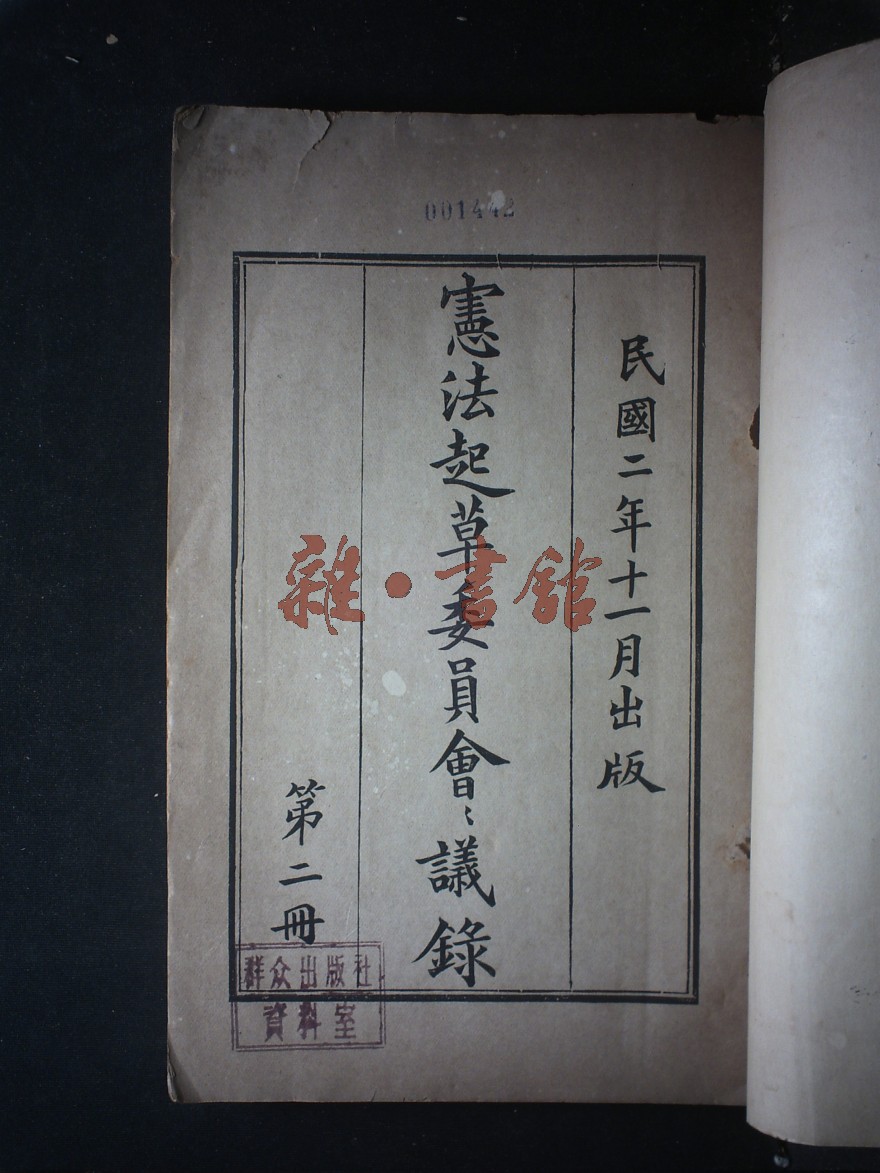 001442
民國二年十一月出版
憲法起草委員會〻議錄
第二冊
雜·書館
群众出版社
資料室